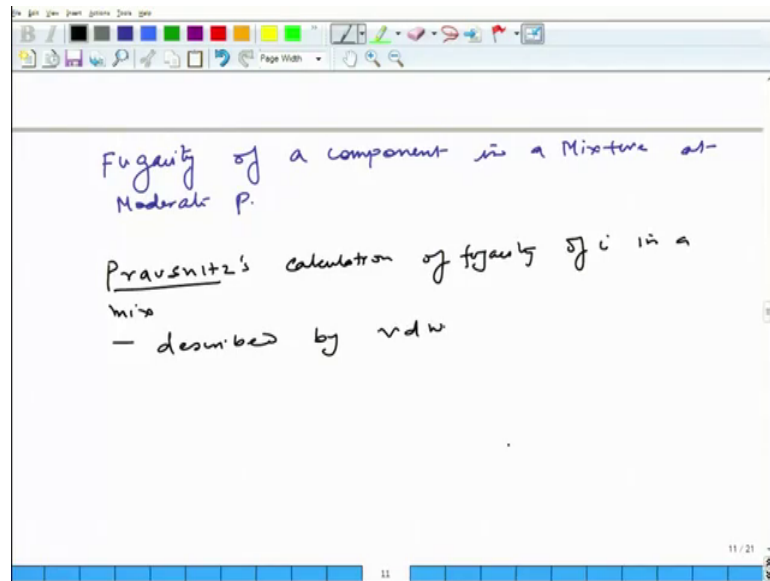 File Edit View Insert Actions Tools Help
B I
Page Width
Fugacity of a component in a Mixture at
Moderate P.
Prausnitz's calculation of fugacity of i in a
mix
— described by vdw
11 / 21
11